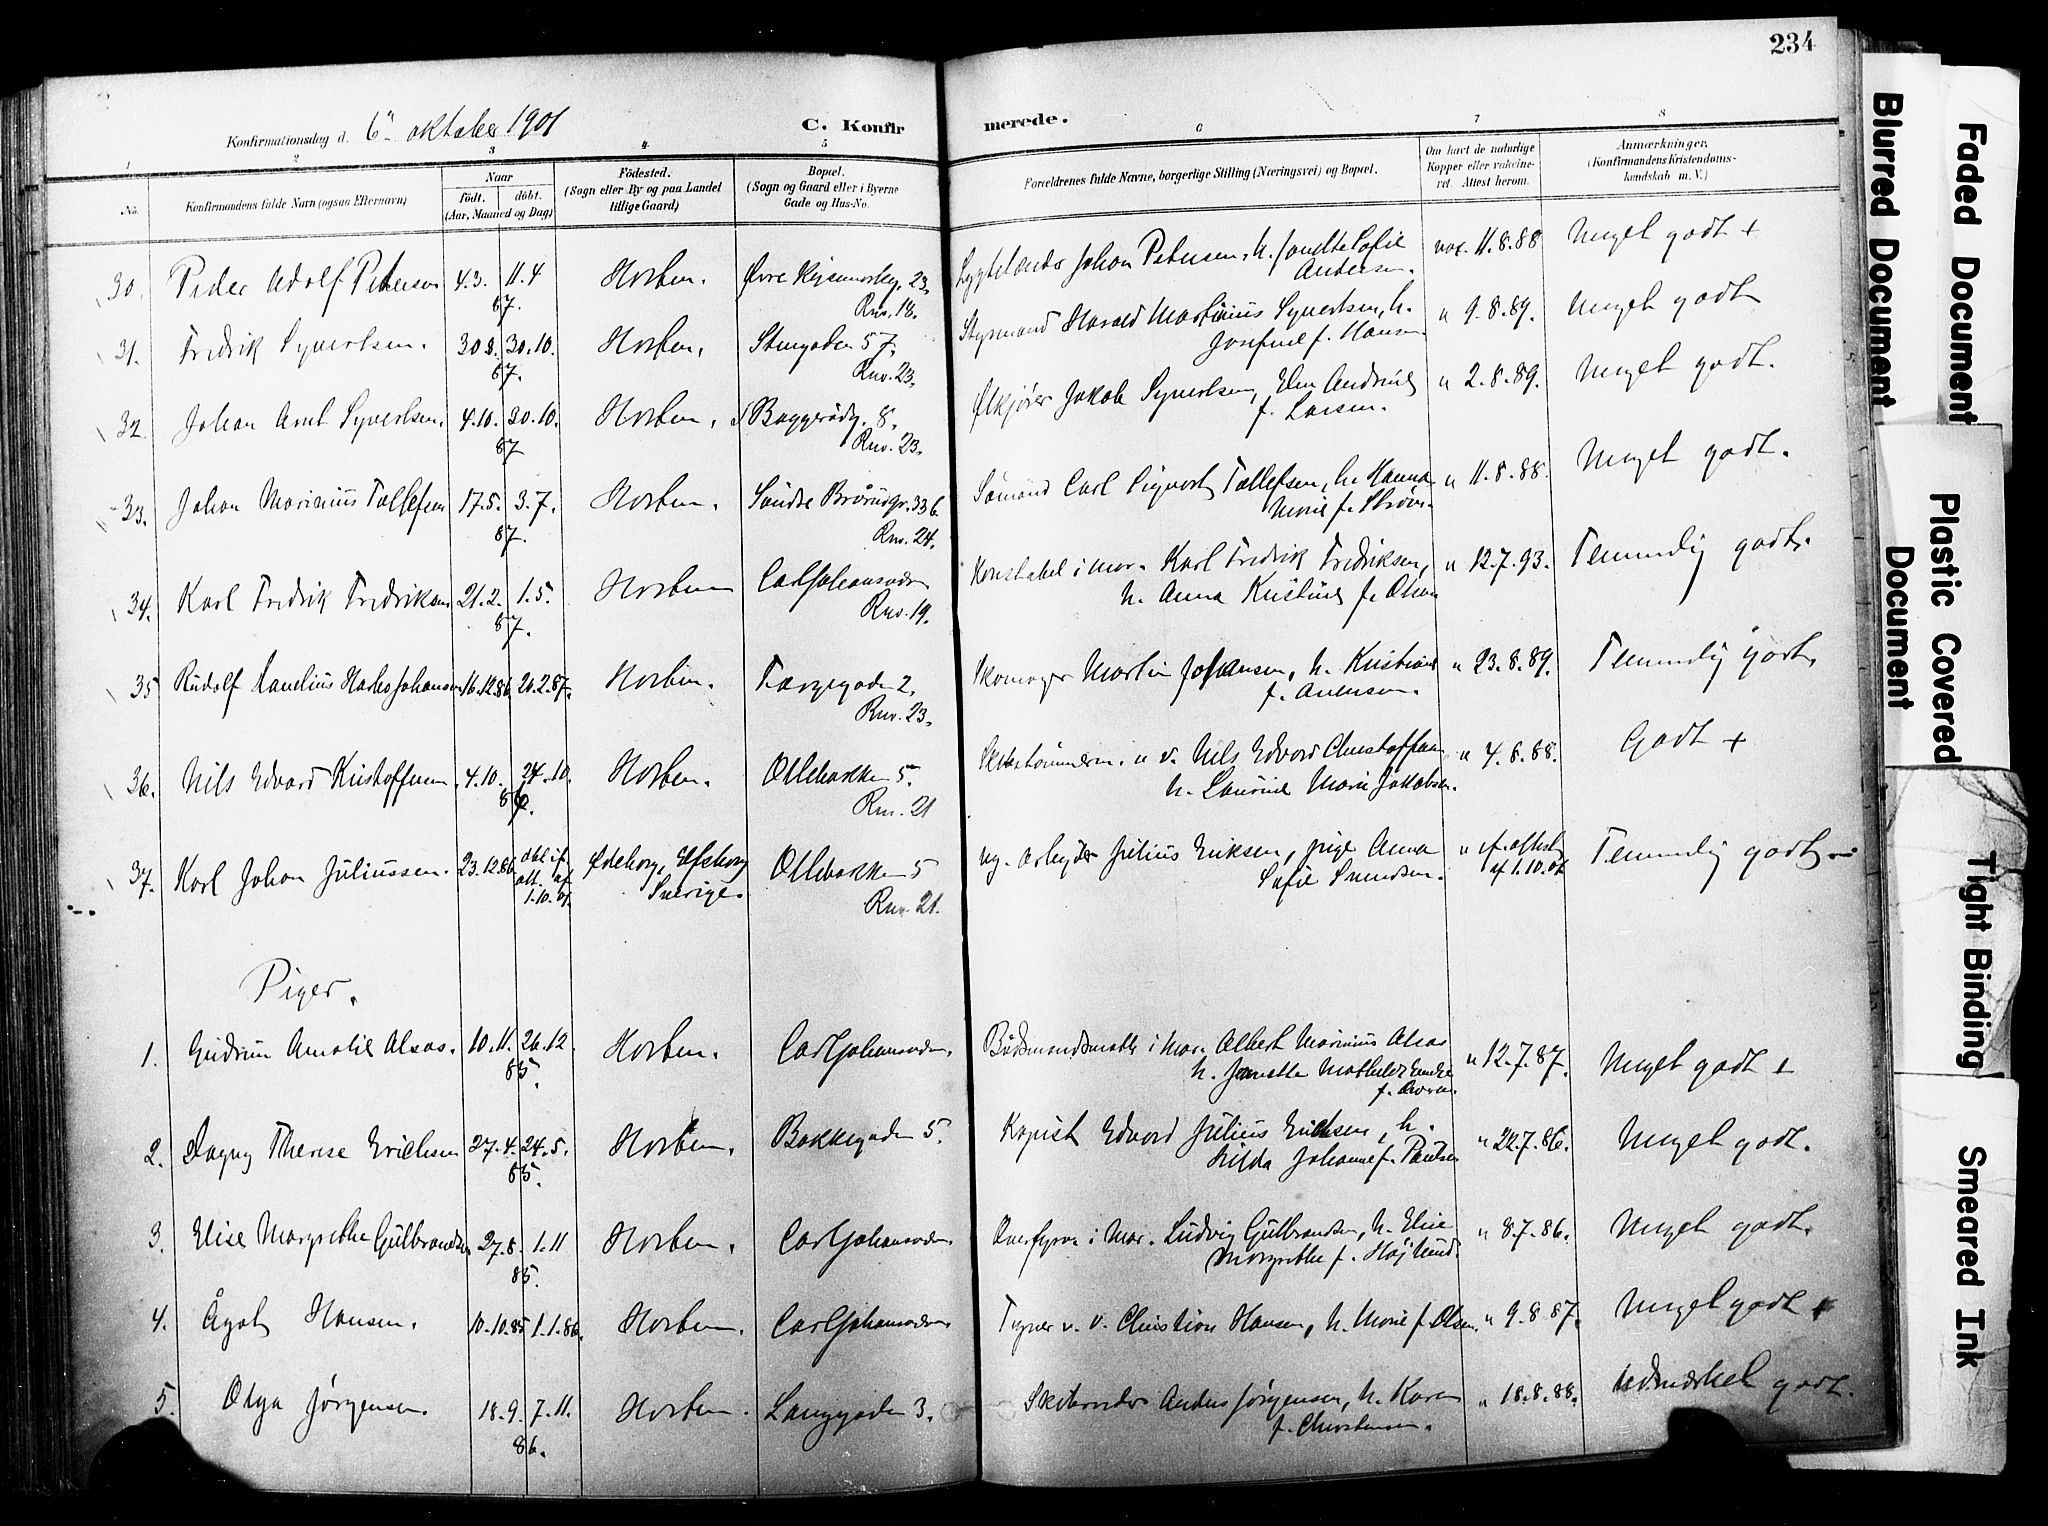 234
Konfirmationsdag d. 6te oktober 1901
C. Konfirmerede.
1 2 3 4 5 6 7 8
No. Konfirmandens fulde Navn (ogsaa Efternavn) Naar født. døbt. (Aar, Maaned og Dag) Fødested. (Sogn eller By og paa Landet tillige Gaard) Bopæl. (Sogn og Gaard eller i Byerne Gade og Hus-No. Forældrenes fulde Navne, borgerlige Stilling (Næringsvei) og Bopæl. Om havt de naturlige Kopper eller vakcineret. Attest herom. Anmærkninger, (Konfirmandens Kristendomskundskab m. V.)
30. Peder Adolf Petersen 4.3. 11.4 87. Horten. Øvre 23, Rnv. 18. Johan Petersen, h. Sofie Andersen. vax. 11.8.88 Meget godt +
31. Fredrik Syvertsen. 30.10. 87. Horten. Stengaden 57, Rnv. 23. Styrmand Harald Martinius Syvertsen, h. Josefine f. Hansen " 9.8.89. Meget godt
32. Johan Arnt Syvertsen. 4.10. 30.10. 87 Horten. Baggerødg. 8, Rnv. 23. Ølkjører Jakob Syvertsen, Elen Andrine f. Larsen. " 2.8.89. Meget godt.
33. Johan Marinius Tollefsen 17.5. 3.7. 87. Horten. Søndre Brårudgr. 336 Rnv. 24. Sømand Carl Sigvart Tollefsen, h. Hanna Marie f. Strøm. " 11.8.88. Meget godt.
34. Karl Fredrik Fredriksen 21.2. 1.5. 87. Horten Carljohansværn Rnv. 19. Konstabel i mar. Karl Fredrik Fredriksen, h. Anna Kristine f. Olsen " 12.7.93. Temmelig godt.
35 Rudolf Johansen 16.12.86 20.2.87. Horten. Færgegaden 2. Rnv. 23. Skomager Martin Johansen, h. Kristiane f. " 23.8.89. Temmelig godt.
36. Nils Edvard Kristoffersen 4.10. 24.10. 86. Horten. Ollebakken 5. Rnv. 21 Skibstømmerm. u. v. Nils Edvard Christoffersen h. Laurine Marie Jakobsen. " 4.8.88. Godt +
37. Karl Johan Juliussen. 23.12.86 døbt if. att. af 1.10.01. Ødeborg, Elfsborg Sverige. Ollebakken 5 Rnv. 21. ug. arbeider Julius Eriksen, pige Anna Sofie Svendsen. " if. attest af 1.10.01 Temmelig godt
Piger.
1. Gudrun Amalie Alsos. 10.11. 26.12 85. Horten. Carljohansværn. i mar. Albert Marinius Alsos h. Janette Mathilde " 12.7.87. Meget godt +
2. Dagny Therese Erichsen 27.4. 24.5. 85. Horten. Bakkegaden 5. Kopist Edvard Julius Erichsen, h. Hilda Johanne f. Paulsen " 22.7.86. Meget godt.
3. Elise Margrethe Gulbrandsen 27.8. 1.11 85. Horten. Carljohansværn i mar. Ludvig Gulbrandsen, h. Elise Margrethe f. Højlund. " 8.7.86. Meget godt.
4. Ågot Hansen. 10.10.85 1.1.86. Horten. Carljohansværn. Tegner v. V. Christian Hansen, h. Marie f. Olsen. " 9.8.87. Meget godt +
5. Olga Jørgensen. 18.9. 7.11. 86. Horten. Langgaden 3. Anders Jørgensen, h. Karen f. Christensen. " 18.8.88. Udmærket godt.
Faded Document
Blurred Document
Plastic Covered Document
Tight Binding
Smeared Ink